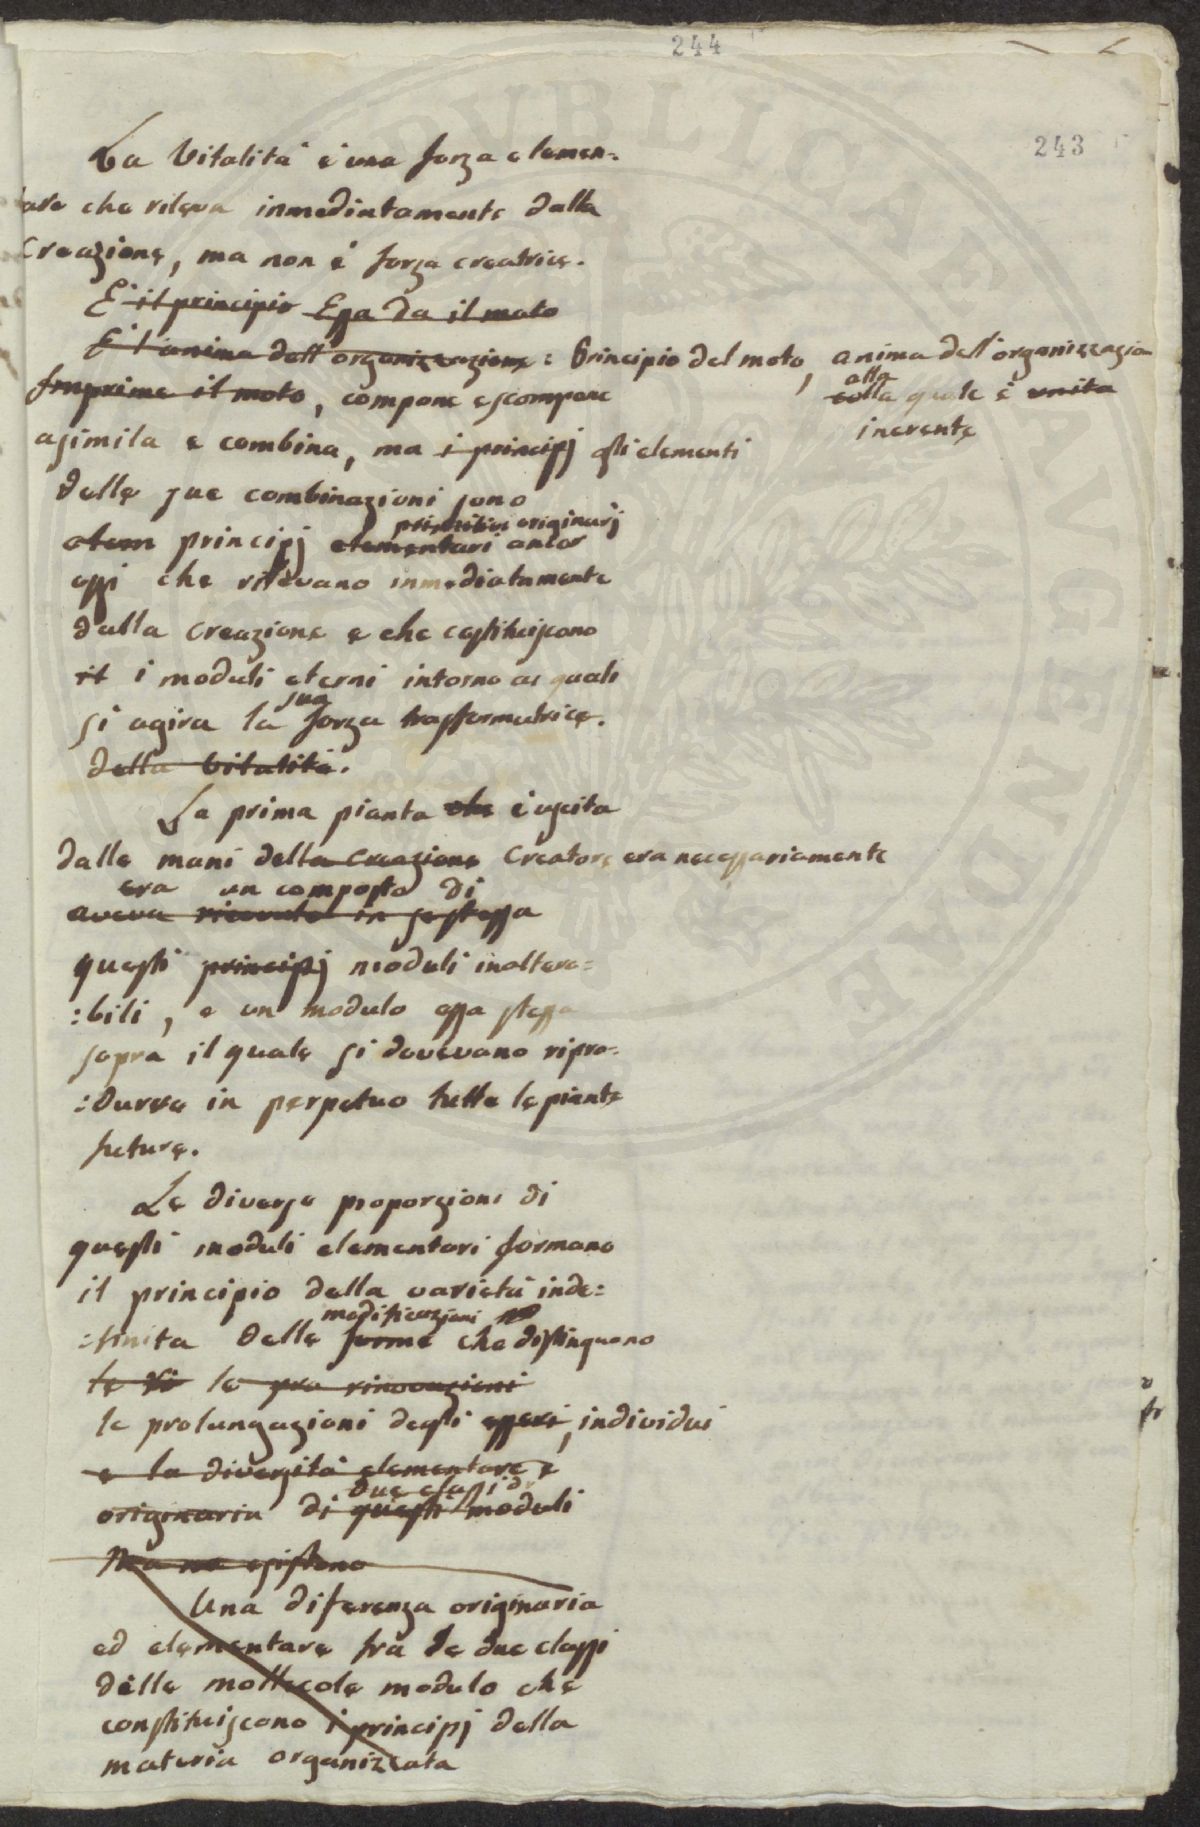 244
243
La Vitalità è una forza elemen=
tare che rileva inmediatamente dalla
Creazione, ma non è forza creatrice.
E' il principio Essa da il moto
E' l'anima dell'organizzazione : Principio del moto, anima dell'organizzazion
alla
colla quale è unita
inerente
Imprime il moto, compone e scompone
assimila e combina, ma i principj gli elementi
delle sue combinazioni sono
primitivi originarj
elem principj elementari ancor
essi che rilevano inmediatamente
dalla Creazione e che costituiscono
il i moduli eterni intorno ai quali
sua
si agira la forza trasformatrice.
della Vitalità.
La prima pianta che è uscita
dalle mani della Creazione Creatore era necessariamente
era un composto di
aveva ricevuto in se stessa
questi principj moduli inaltera=
:bili, e un modulo essa stessa
sopra il quale si dovevano ripro=
:durre in perpetuo tutte le piante
future.
Le diverse proporzioni di
questi moduli elementari formano
il principio della varietà inde=
modificazioni
:finita delle forme che distinguono
le ri le pro rinovazioni
le prolungazioni degli esseri, individui
e la diversità elementare e
due classi di
originaria di questi moduli
Ma ne esistono
Una diferenza originaria
ed elementare fra le due classi
delle mollecole modulo che
constituiscono i principj della
materia organizzata